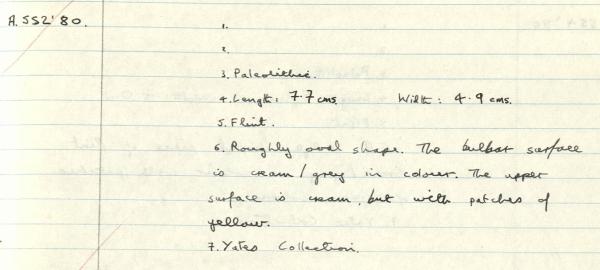 A.552'80.
1.
2.
3. Paleolithic.
4. Length: 7.7 cms. Width: 4.9 cms.
5. Flint.
6. Roughly oval shape. The bulbar surface
is cream/grey in colour. The upper
surface is cream, but with patches of
yellow.
7. Yates Collection.